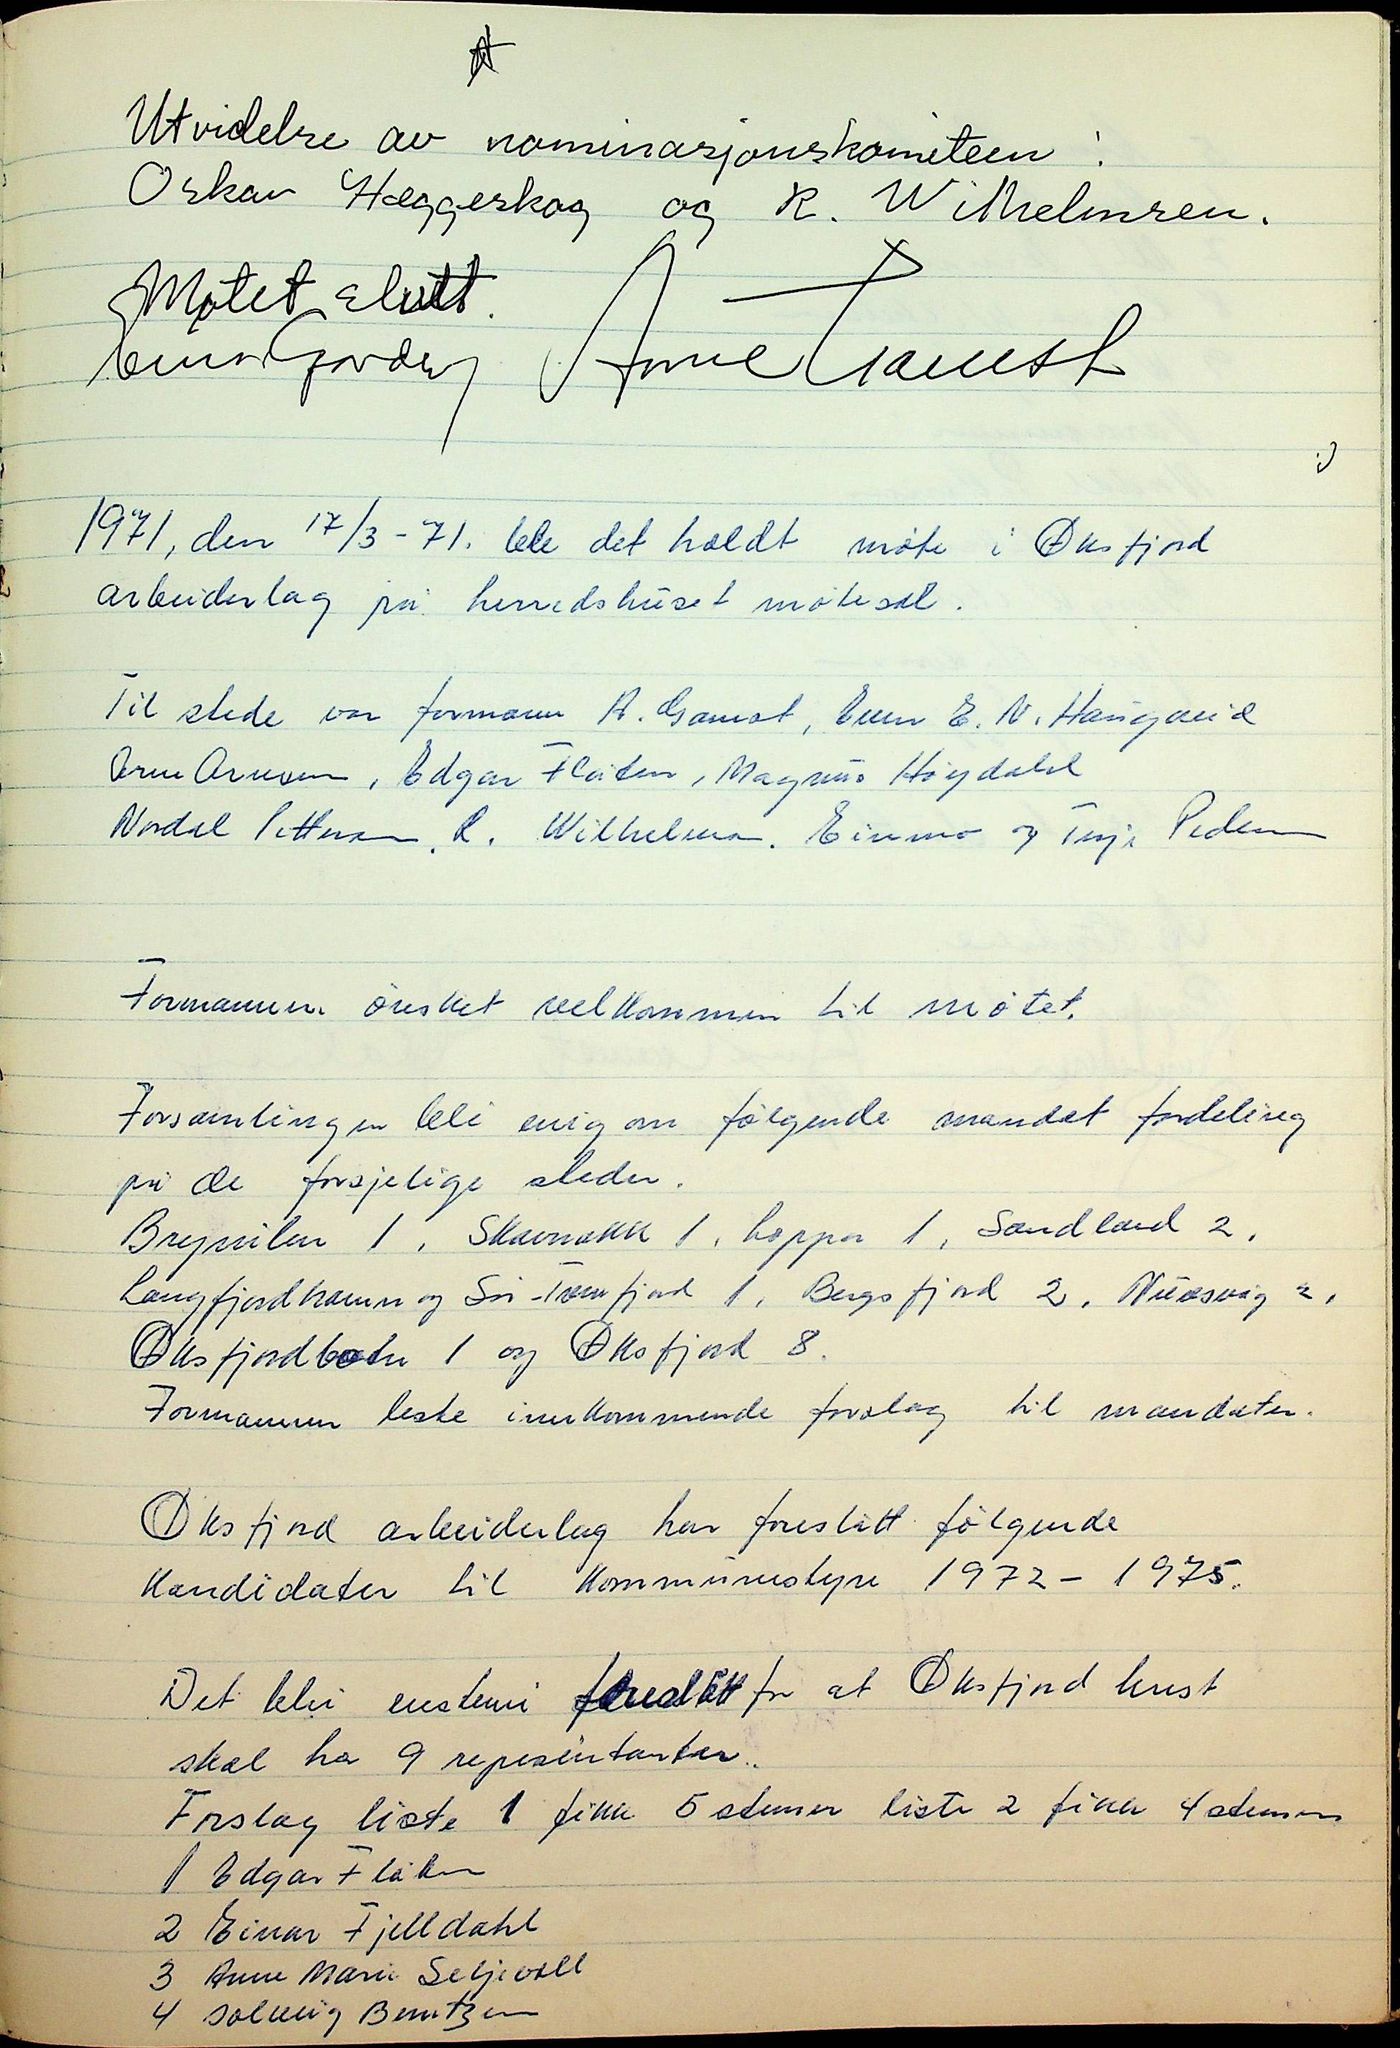 Utvidelse av nominasjonskomiteen:
Oskar Hæggerskog og R. Wilhelmsen.
Møtet slutt.
Arne Gamst
1971, den 17/3-71. ble det holdt møte i Øksfjord
arbeiderlag på herredshuset møtesal.
Til stede var formann A. Gamst, E. N. Haugneid
Arne Arnesen, Edgar Flåten, Magnus Høydahl
Nordal Pettersen, R. Wilhelmsen. Einmo og Terje Pedersen
Formannen ønsket velkommen til møtet.
Forsamlingen blei enig om følgende mandat fordeling
på de forsjelige steder.
Brynilen 1, Skavnakk 1, Loppa 1, Sandland 2,
Langfjordhamn og Sør-Tverrfjord 1, Bergsfjord 2, Nuvsvåg 2,
Øksfjordbotn 1 og Øksfjord 8.
Formannen leste innkommende forslag til mandater.
Øksfjord arbeiderlag har foreslått følgende
kandidater til kommunestyre 1972 - 1975.
Det blei enstemi foreslått for at Øksfjord krest
skal ha 9 representanter.
Forslag liste 1 fikk 5 stemer liste 2 fikk 4 stemer
1 Edgar Flåten
2 Einar Fjelldahl
3 Anne Marie Seljevoll
4 Solveig Berntzen